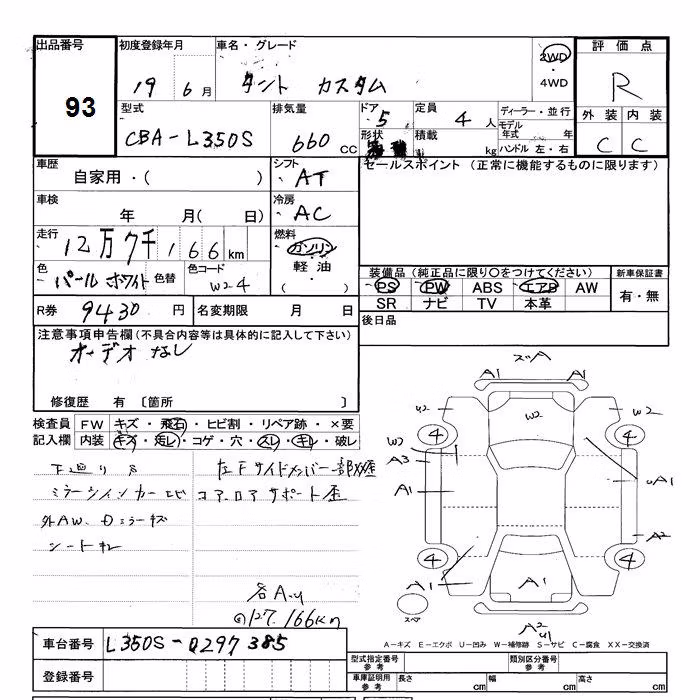 出品番号 初度登録年月 車名・グレード 評価点
93 19 6月 タント カスタム 2WD ・ 4WD R
型式 排気量 ドア 定員 ディーラー・並行 外装 内装
CBA-L350S 660 CC 5 4人 モデル年式 年 C C
形状 積載 kg ハンドル 左・右
車歴 シフト セールスポイント (正常に機能するものに限ります)
自家用・( ) AT
車検 冷房
年 月( 日) AC
走行 燃料
12万7千166km ガソリン
軽油
・( )
色 色替 色コード 装備品 (純正品に限り○をつけてください) 新車保証書
パールホワイト W24 PS PW ABS エアB AW 有・無
SR ナビ TV 本革
R券 9430円 名変期限 月 日 後日品
注意事項申告欄 (不具合内容等は具体的に記入して下さい)
オーデオなし
修復歴 有 〔箇所 〕
検査員 FW キズ・飛石・ヒビ割・リペア跡・×要
記入欄 内装 キズ・汚レ・コゲ・穴・スレ・キレ・破レ
下廻りS 左Fサイドメンバー一部
コアロアサポート歪
外AW、
シート
各A.U
127.166km
A1 A1
U2 W2 W2
4 4
W2
A3
A1 A1
A2
4 4
A1 A1 A1
スペア
A2 U1
A-キズ E-エクボ U-凹み W-補修跡 S-サビ C-腐食 XX-交換済
車台番号 L350S-0297385
登録番号
型式指定番号 参考 類別区分番号 参考
車庫証明用 参考 長さ cm 幅 cm 高さ cm